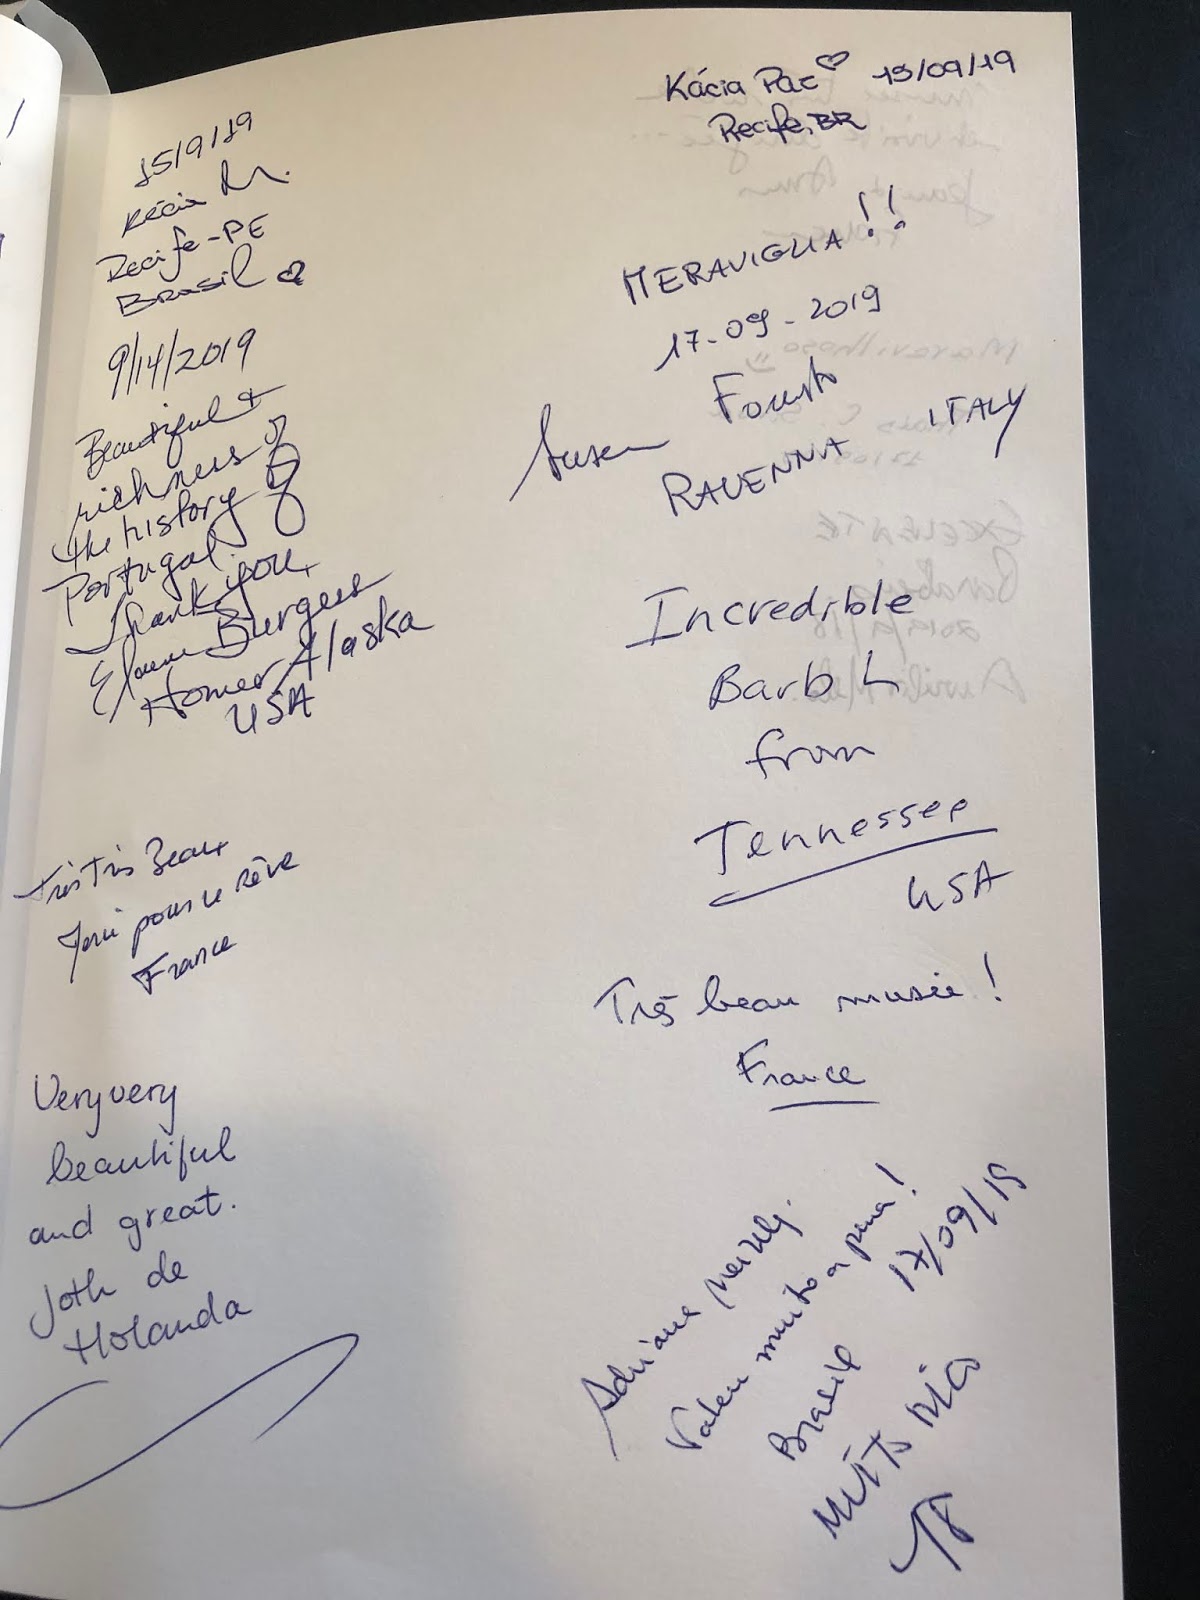 15/9/19
Kécia
Recife-PE
Brasil
9/14/2019
Beautiful +
richness of
the history of
Portugal.
Thank you,
Elaine Burgess
Homer Alaska
USA
Très Très Beau
Merci pour le rêve
France
Very very
beautiful
and great.
Joth de
Holanda
Kácia Paz 15/09/19
Recife, BR
MERAVIGLIA!!
17-09-2019
Fausto
RAVENNA ITALY
Incredible
Barb L
from
Tennessee
USA
Très beau musée!
France
Adriana
Valeu muito a pena!
Brasil 17/09/19